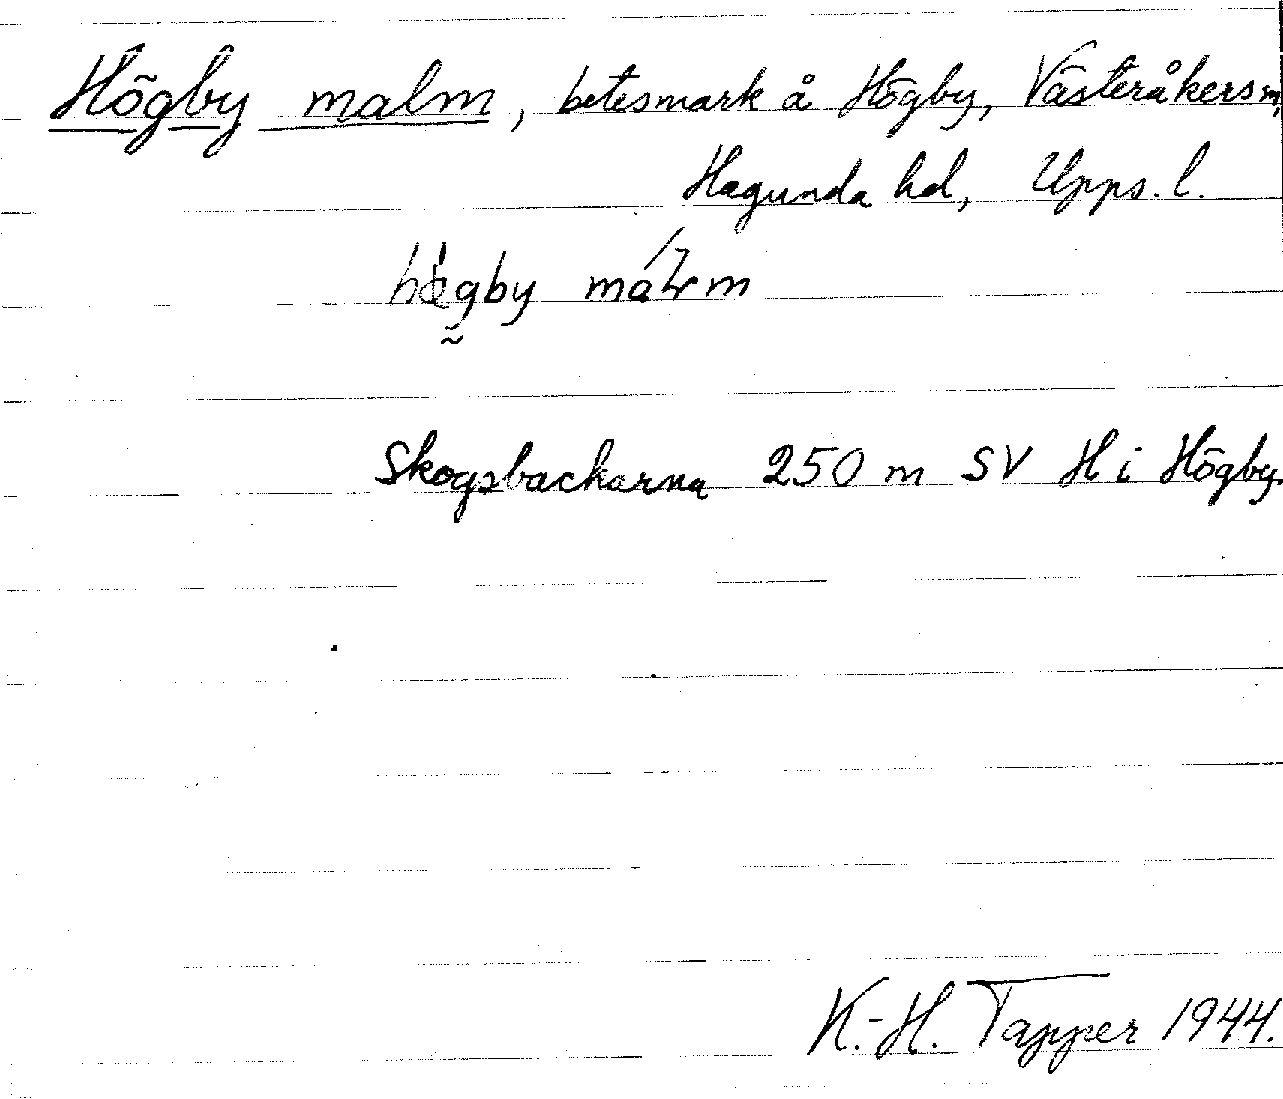 Högby malm, betesmark å Högby, Västeråkers sn,
Hagunda hd, Upps. l.
Skogsbackarna 250 m SV H i Högby.
K.-H. Tapper 1944.